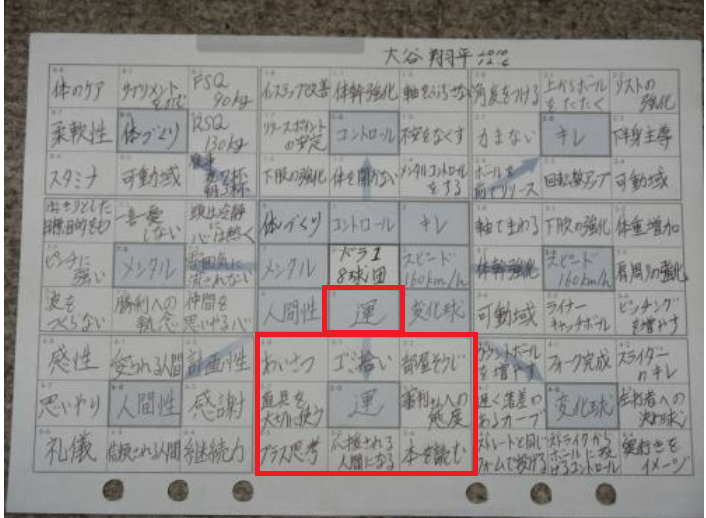 大谷翔平
体のケア サプリメントをのむ FSQ 90kg インステップ改善 体幹強化 軸をぶらさない 角度をつける 上からボールをたたく リストの強化
柔軟性 体づくり RSQ 130kg リリースポイントの安定 コントロール 不安をなくす 力まない キレ 下半身主導
スタミナ 可動域 食事 夜7杯 朝3杯 下肢の強化 体を開かない メンタルコントロールをする ボールを前でリリース 回転数アップ 可動域
はっきりとした目標、目的をもつ 一喜一憂しない 頭は冷静に心は熱く 体づくり コントロール キレ 軸でまわる 下肢の強化 体重増加
ピンチに強い メンタル 雰囲気に流されない メンタル ドラ1 8球団 スピード 160km/h 体幹強化 スピード 160km/h 肩周りの強化
波をつくらない 勝利への執念 仲間を思いやる心 人間性 運 変化球 可動域 ライナーキャッチボール ピッチングを増やす
感性 愛される人間 計画性 あいさつ ゴミ拾い 部屋そうじ カウントボールを増やす フォーク完成 スライダーのキレ
思いやり 人間性 感謝 道具を大切に使う 運 審判さんへの態度 遅く落差のあるカーブ 変化球 左打者への決め球
礼儀 信頼される人間 継続力 プラス思考 応援される人間になる 本を読む ストレートと同じフォームで投げる ストライクからボールに投げるコントロール 奥行きをイメージ